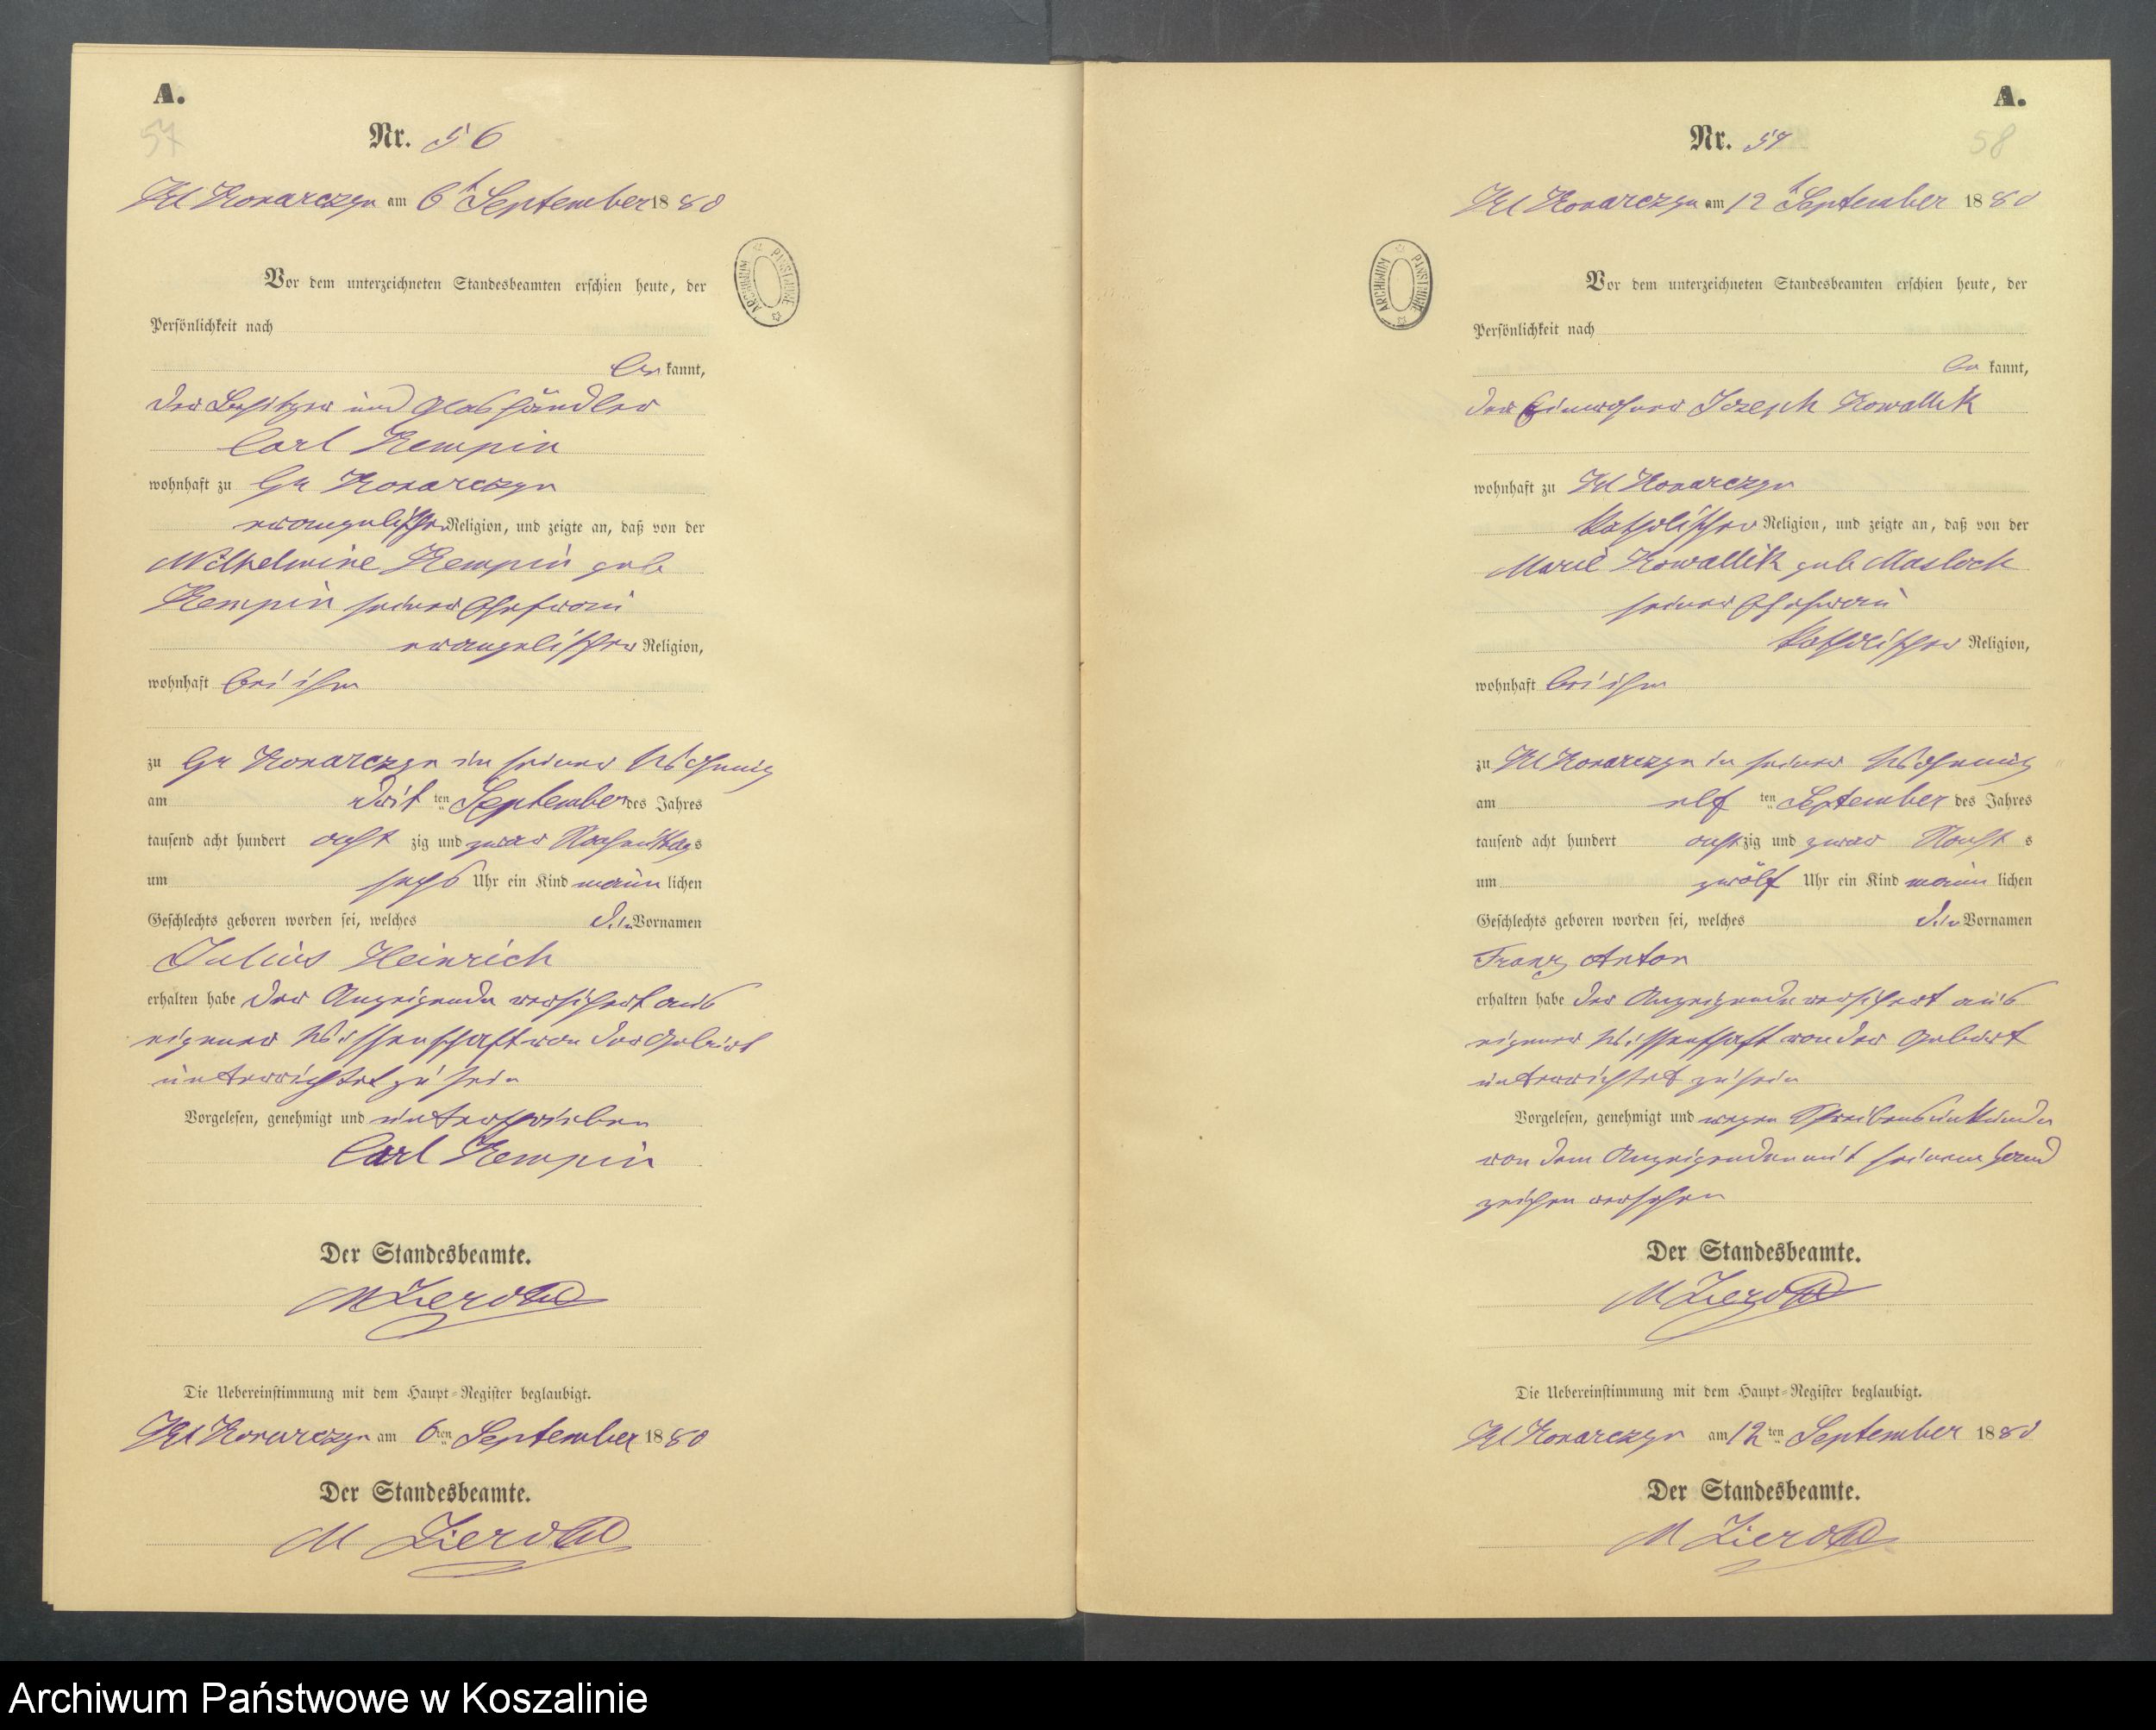 A.
57
Nr. 56
Kl Konarczyn am 6t September 1880
Vor dem unterzeichneten Standesbeamten erschien heute, der
Persönlichkeit nach
bekannt,
der Besitzer und Glashändler
Carl Kempin
wohnhaft zu Gr Konarczyn
evangelischer Religion, und zeigte an, daß von der
Wilhelmine Kempin geb
Kempin seiner Ehefrau
evangelischer Religion,
wohnhaft bei ihm
zu Gr Konarczyn in seiner Wohnung
am dritten September des Jahres
tausend acht hundert achtzig und zwar Nachmittags
um sechs Uhr ein Kind männlichen
Geschlechts geboren worden sei, welches die Vornamen
Julius Heinrich
erhalten habe der Anzeigende versichert aus
eigener Wissenschaft von der Geburt
unterrichtet zu sein
Vorgelesen, genehmigt und unterschrieben
Carl Kempin
Der Standesbeamte.
M Zierold
Die Uebereinstimmung mit dem Haupt-Register beglaubigt.
Kl Konarczyn am 6ten September 1880
Der Standesbeamte.
M Zierold
ARCHIWUM PAŃSTWOWE
A.
58
Nr. 57
Kl Konarczyn am 12t September 1880
ARCHIWUM PAŃSTWOWE
Vor dem unterzeichneten Standesbeamten erschien heute, der
Persönlichkeit nach
bekannt,
der Einwohner Joseph Kowallik
wohnhaft zu Kl Konarczyn
katholischer Religion, und zeigte an, daß von der
Marie Kowallik geb Maslock
seiner Ehefrau
katholischer Religion,
wohnhaft bei ihm
zu Kl Konarczyn in seiner Wohnung
am elften September des Jahres
tausend acht hundert achtzig und zwar Nachts
um zwölf Uhr ein Kind männlichen
Geschlechts geboren worden sei, welches die Vornamen
Franz Anton
erhalten habe der Anzeigende versichert aus
eigener Wissenschaft von der Geburt
unterrichtet zu sein
Vorgelesen, genehmigt und wegen Schreibensunkunde
von dem Anzeigenden mit seinem Hand
zeichen versehen
Der Standesbeamte.
M Zierold
Die Uebereinstimmung mit dem Haupt-Register beglaubigt.
Kl Konarczyn am 12ten September 1880
Der Standesbeamte.
M Zierold
Archiwum Państwowe w Koszalinie